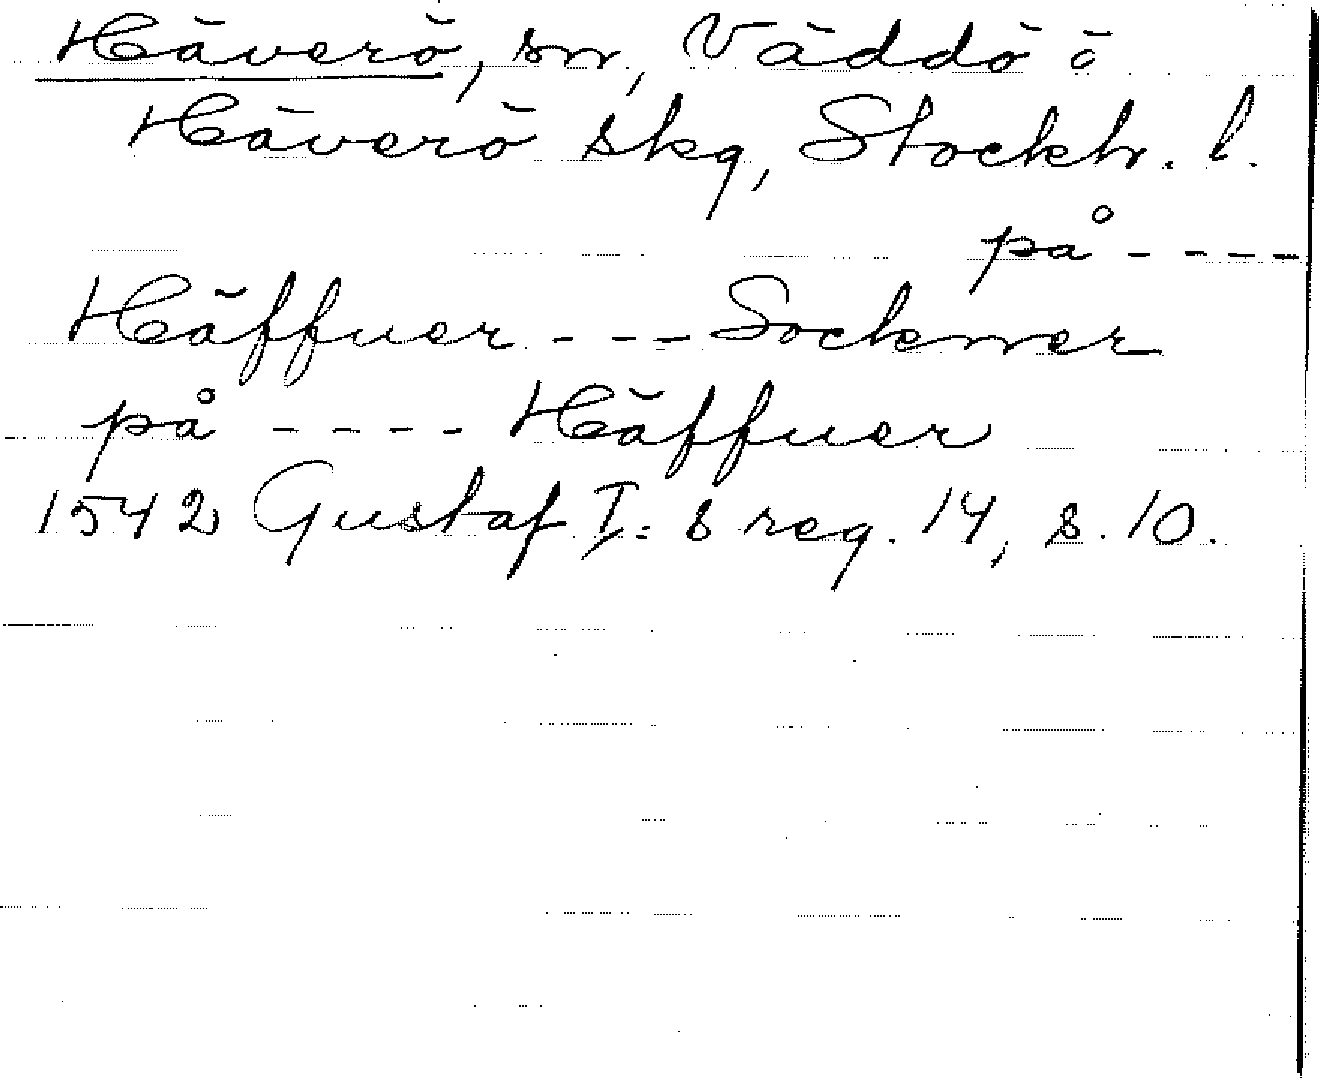 Häverö, sn, Väddö o
Häverö skg, Stockh. l.
på ----
Häffuer --- Socknner
på ---- Häffuer
1542 Gustaf I:s reg. 14, s. 10.